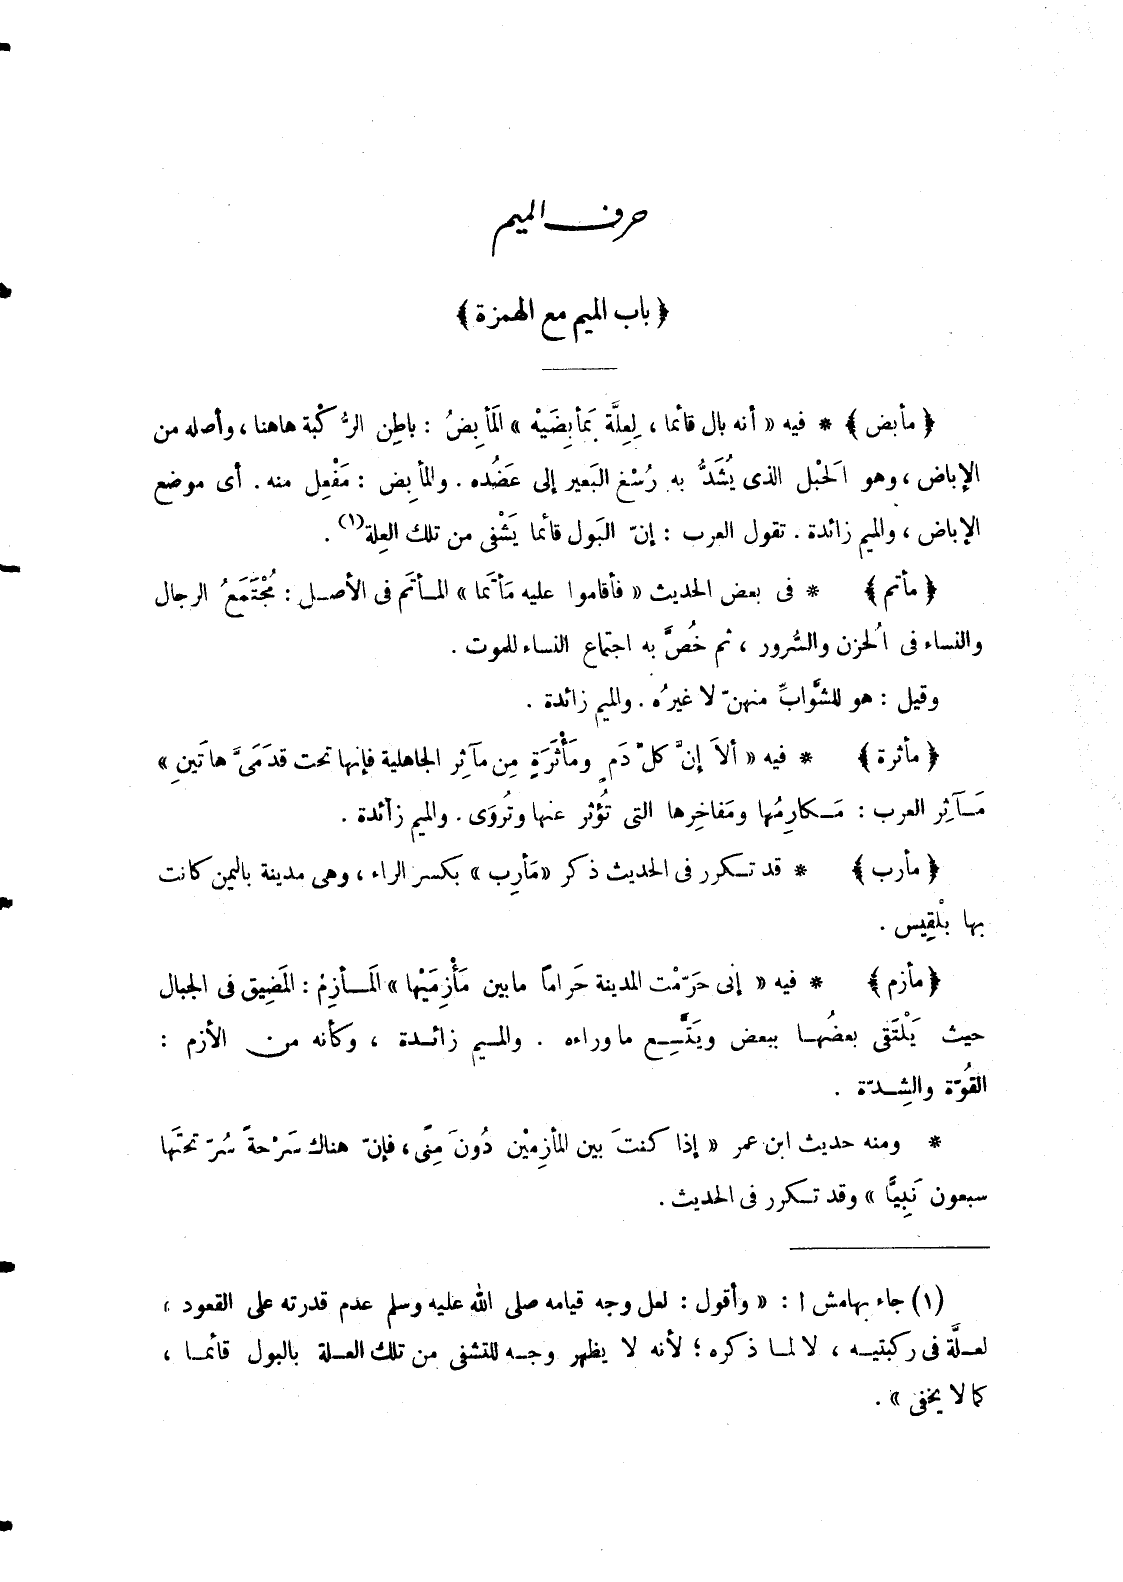 حرف الميم
﴿ باب الميم مع الهمزة ﴾
﴿ مأبض ﴾ * فيه « أنه بال قائما ، لِعِلَّة بمَأبِضَيْه » المَأبِضُ : باطِن الرُّكْبة هاهنا ، وأصله من
الإباض ، وهو الحَبْل الذى يُشَدُّ به رُسْغ البَعير إلى عَضُده . والمأبِض : مَفْعِل منه . أى موضع
الإباض ، والميم زائدة . تقول العرب : إنّ البَول قائما يَشْفى من تلك العِلة(١) .
﴿ مأتم ﴾ * فى بعض الحديث « فأقاموا عليه مَأتَما » المـأتَم فى الأصـل : مُجْتَمَعُ الرجال
والنساء فى الحُزن والسُّرور ، ثم خُصَّ به اجتماع النساء للموت .
وقيل : هو للشَّوابِّ منهنّ لا غيرُه . والميم زائدة .
﴿ مأثرة ﴾ * فيه « ألاَ إنَّ كلّ دَمٍ ومَأْثَرَةٍ مِن مآثِر الجاهلية فإنها تحت قدَمَىَّ هاتَينِ »
مَـآثِر العرب : مَـكارِمُها ومَفاخِرها التى تُؤثر عنها وتُروَى . والميم زائدة .
﴿ مأرب ﴾ * قد تـكرر فى الحديث ذكر « مَأرِب » بكسر الراء ، وهى مدينة باليمن كانت
بها بلْقِيس .
﴿ مأزم ﴾ * فيه « إنى حَرّمْت المدينة حَراماً مابين مَأْزِمَيْها » المَـأزِمُ : المَضِيق فى الجبال
حيث يَلْتَقى بعضُهـا ببعض ويَتَّسِـع ماوراءه . والمـيم زائـدة ، وكأنه من الأزم :
القُوّة والشِـدّة .
* ومنه حديث ابن عمر « إذا كنتَ بين المأزِمَيْن دُونَ مِنًى ، فإنّ هناك سَرْحةً سُرّ تحتَها
سبعون نَبِيًّا » وقد تـكرر فى الحديث .
(١) جاء بهامش ا : « وأقول : لعل وجه قيامه صلى الله عليه وسلم عدم قدرته على القعود ،
لعـلَّة فى ركبتيـه ، لا لمـا ذكره ؛ لأنه لا يظهر وجـه للتشفى من تلك العـلة بالبول قائمـا ،
كما لا يخفى » .